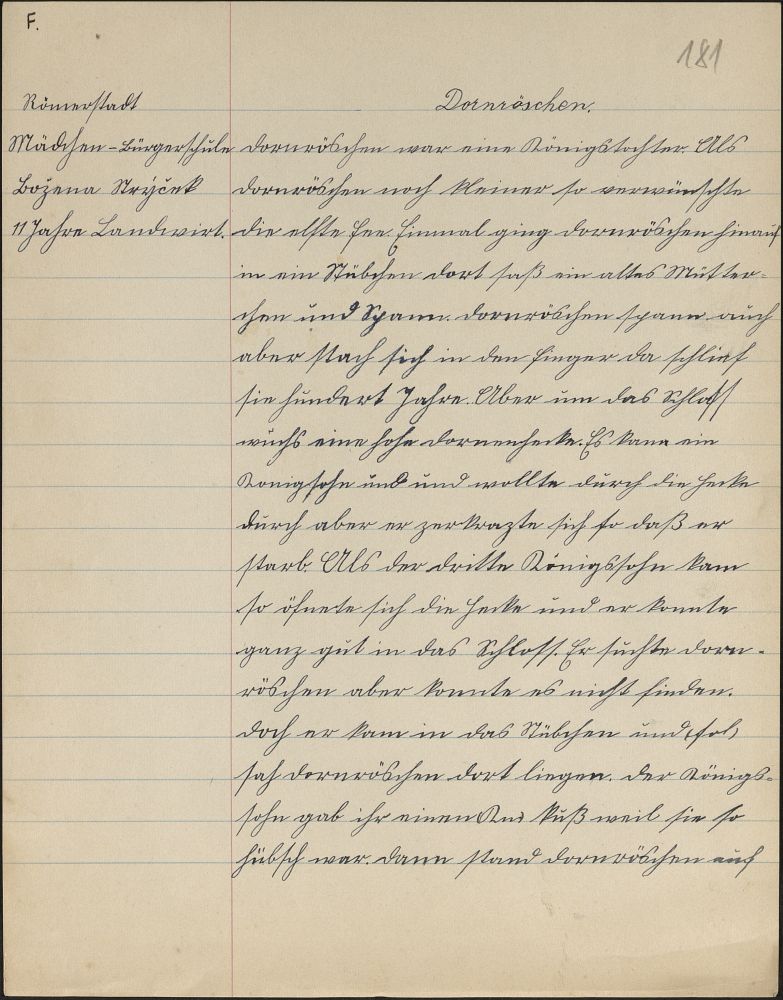 F.
181
Römerstadt
Mädchen-Bürgerschule
Božena Strýček
11 Jahre Landwirt.
Dornröschen.
Dornröschen war eine Königstochter. Als
Dornröschen noch kleiner so verwünschte
die elfte Fee. Einmal ging Dornröschen hinauf
in ein Stübchen dort saß ein altes Mütter-
chen und Spann. Dornröschen spann auch
aber stach sich in den Finger da schlief
sie hundert Jahre. Aber um das Schloss
wuchs eine hohe Dornenhecke. Es kam ein
Konigsohn und und wollte durch die Hecke
durch aber er zerkrazte sich so daß er
starb. Als der dritte Königssohn kam
so öfnete sich die Hecke und er konnte
ganz gut in das Schloss. Er suchte Dorn-
röschen aber konnte es nicht finden.
Doch er kam in das Stübchen und
sah Dornröschen dort liegen. Der Königs-
sohn gab ihr einen Kuß weil sie so
hübsch war. Dann stand Dornröschen auf